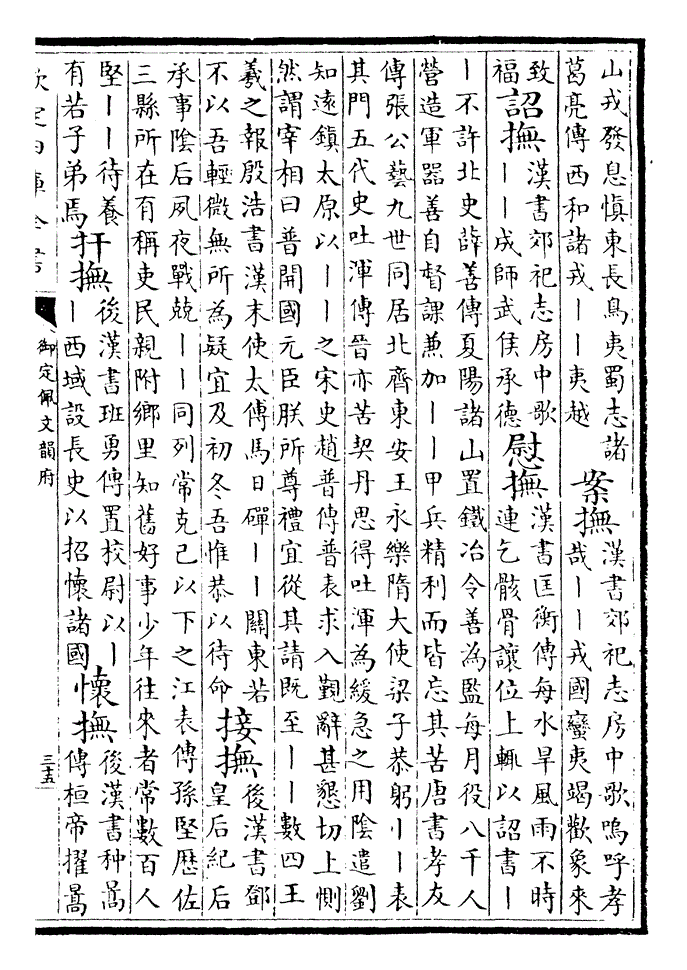 山戎發息慎東長鳥夷蜀志諸
葛亮傳西和諸戎丨丨夷越
案撫
漢書郊祀志房中歌嗚呼孝
哉丨丨戎國蠻夷竭歡象來
致
福
詔撫
漢書郊祀志房中歌
丨丨成師武侯承德
慰撫
漢書匡衡傳每水旱風雨不時
連乞骸骨讓位上輒以詔書丨
丨不許北史薛善傳夏陽諸山置鐵冶令善為監每月役八千人
營造軍器善自督課兼加丨丨甲兵精利而皆忘其苦唐書孝友
傳張公藝九世同居北齊東安王永樂隋大使梁子恭躬丨丨表
其門五代史吐渾傳晉亦苦契丹思得吐渾為緩急之用陰遣劉
知遠鎮太原以丨丨之宋史趙普傳普表求入覲辭甚懇切上惻
然謂宰相曰普開國元臣朕所尊禮宜從其請既至丨丨數四王
羲之報殷浩書漢末使太傅馬日磾丨丨關東若
不以吾輕微無所為疑宜及初冬吾惟恭以待命
接撫
後漢書鄧
皇后紀后
承事陰后夙夜戰兢丨丨同列常克己以下之江表傳孫堅歷佐
三縣所在有稱吏民親附鄉里知舊好事少年往來者常數百人
堅丨丨待養
有若子弟焉
扞撫
後漢書班勇傳置校尉以丨
丨西域設長史以招懷諸國
懷撫
後漢書种暠
傳桓帝擢暠
欽定四庫全書
御定佩文韻府
三十五